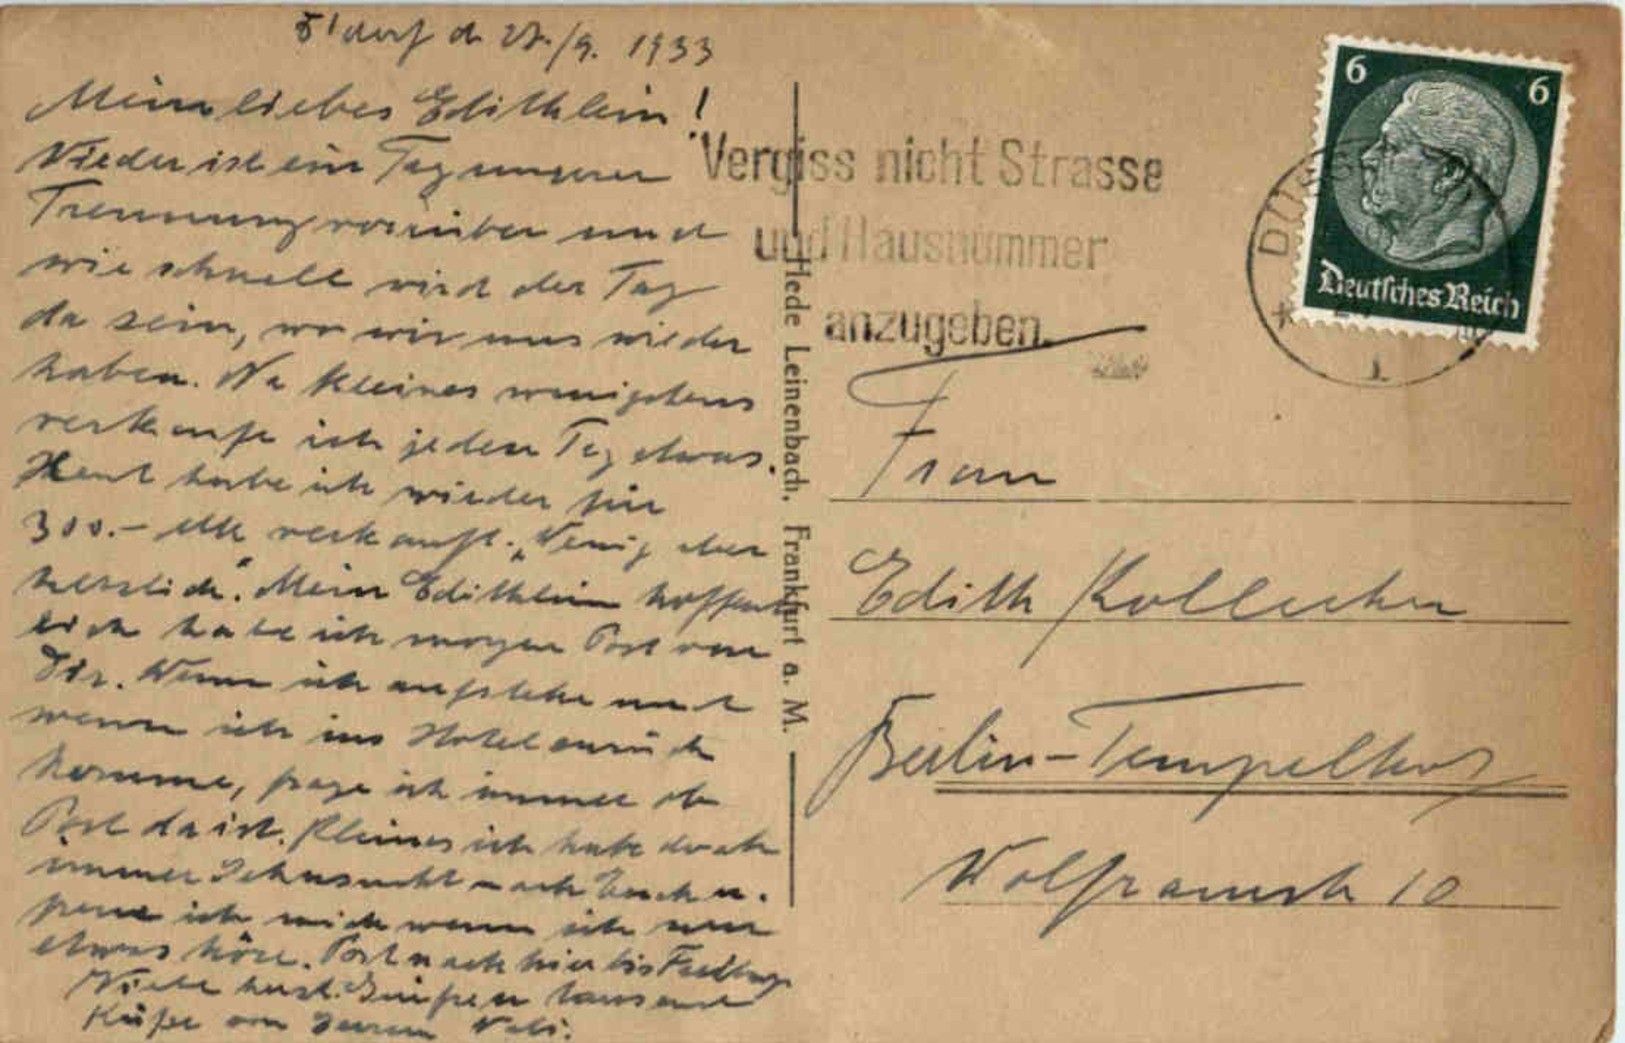 D'dorf d. 27./9. 1933
Mein liebes Edithlein!
Wieder ist ein Tag unserer
Trennung vorüber und
wie schnell wird der Tag
da sein, wo wir uns wieder
haben. Na kleines wenigstens
verkaufe ich jeden Tag etwas.
Heut habe ich wieder für
300.- Mk verkauft. „Wenig aber
herzlich". Mein Edithlein hoffent
lich habe ich morgen Post von
Dir. Wenn ich aufstehe und
wenn ich ins Hotel zurück
komme, frage ich immer ob
Post da ist. Kleines ich habe doch
immer Sehnsucht nach Euch u.
freue ich mich wenn ich nur
etwas höre. Post nach hier bis Freitag
Viele herzl. Grüße u tausend
Küße von Deinem
Vergiss nicht Strasse
und Hausnummer
anzugeben.
Hede Leinenbach, Frankfurt a. M.
6 6
Deutsches Reich
Frau
Edith
Berlin-Tempelhof
Wolframstr 10